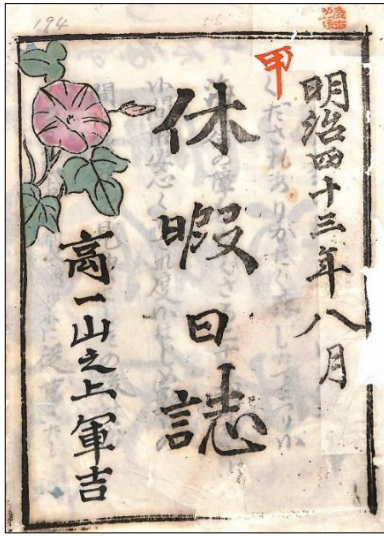 194
明治四十三年八月
甲
休暇日誌
高一山之上軍吉